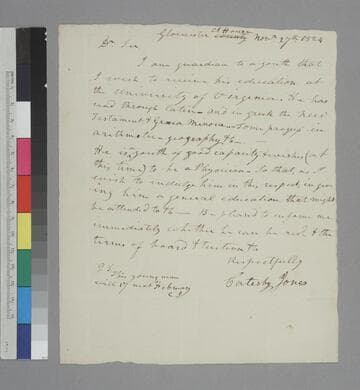 Gloucester Ct House county Novr 27th 1824
Dr Sir
I am guardian to a youth that
I wish to receive his education at
the University of Virginia. He has
read through latin and in greek the New
Testament & Graeca Minora. Some progress in
arithmetic geography &c
He is youth of good capacity & wishes (at
this time) to be a Physician. So that, as I
wish to indulge him in this respect, in giv
ing him a general education that might
be attended to. Be pleased to inform me
immediately whether he can be recd & the
terms of board & tuition &c
Respectfully
Catesby Jones
P.S. This young man
will be 17 next February
C J